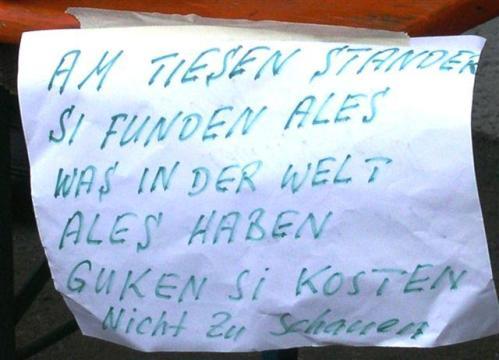 AM TIESEN STANDER
SI FUNDEN ALES
WAS IN DER WELT
ALES HABEN
GUKEN Si KOSTEN
Nicht Zu schauen